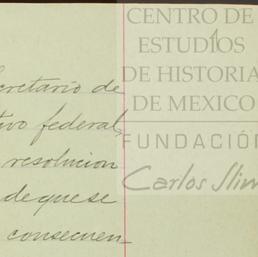 CENTRO DE
ESTUDIOS
DE HISTORIA
DE MEXICO
FUNDACIÓN
Carlos Slim
cretario de
tivo federal,
resolucion
de que se
consecuen